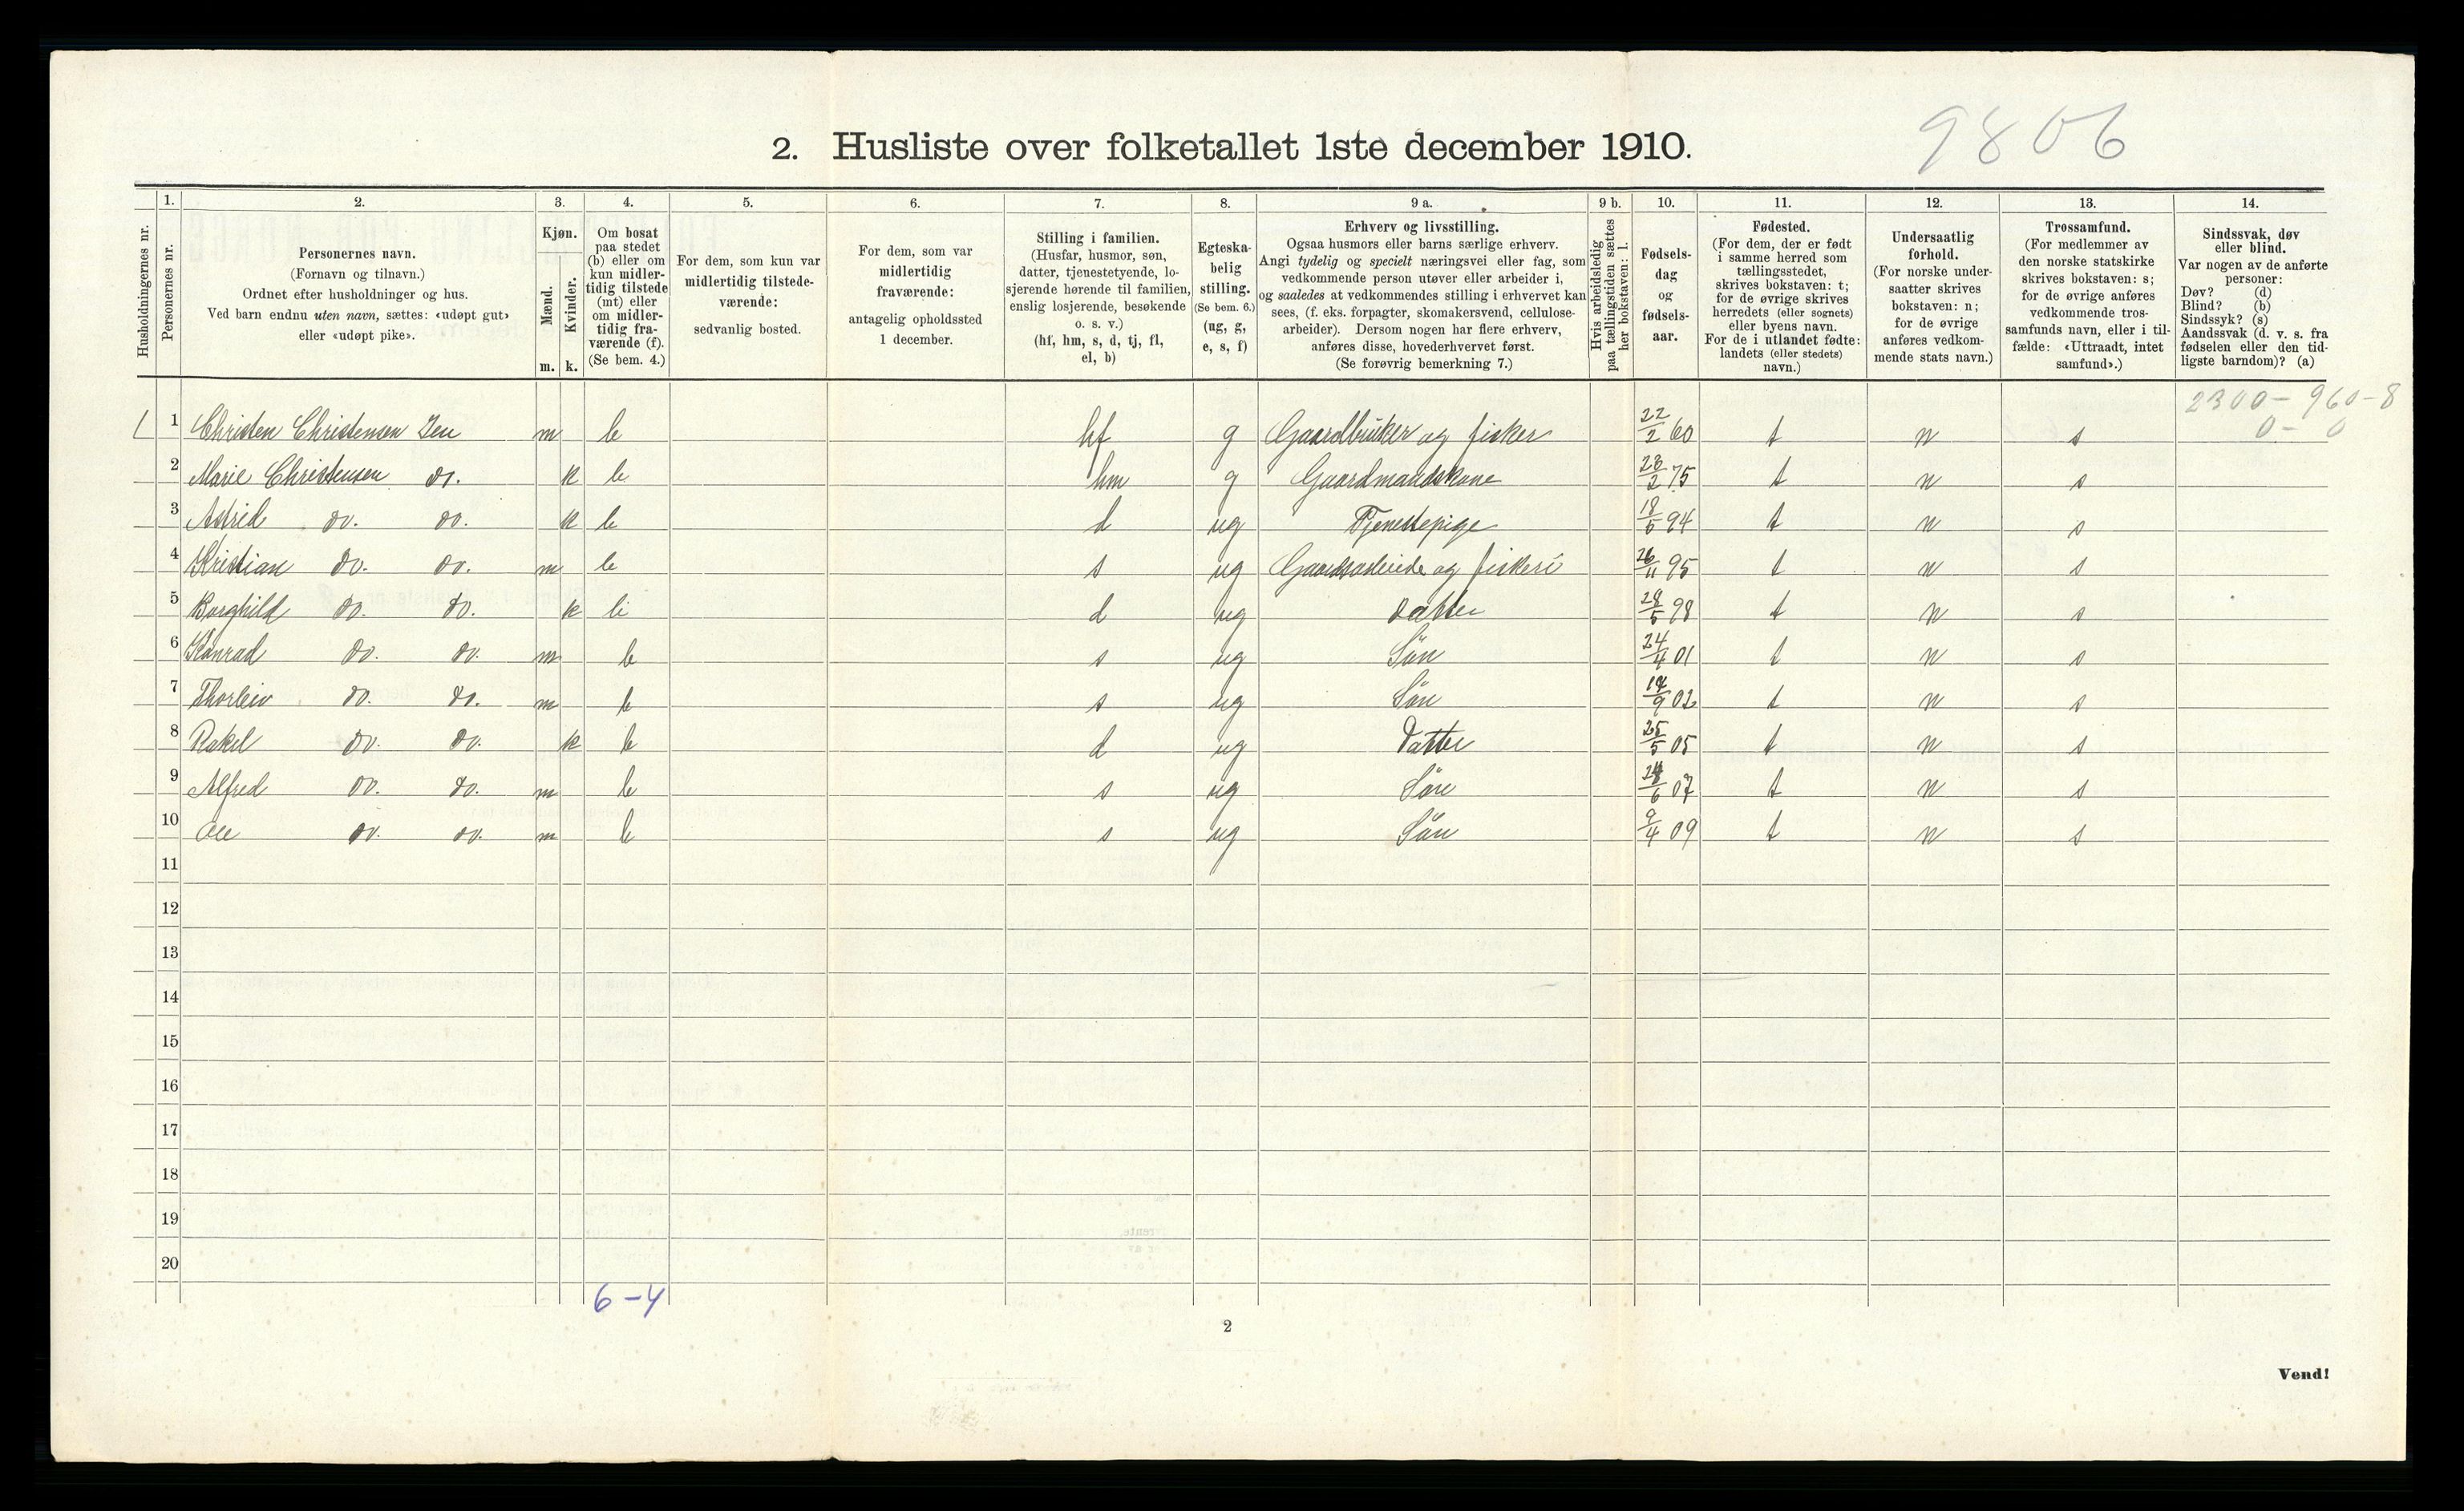 9806
2. Husliste over folketallet 1ste december 1910.
Husholdningernes nr.
1. Personernes nr.
2. Personernes navn.
(Fornavn og tilnavn.)
Ordnet efter husholdninger og hus.
Ved barn endnu uten navn, sættes: «udøpt gut»
eller «udøpt pike».
3. Kjøn.
Mænd. m.
Kvinder. k.
4. Om bosat
paa stedet
(b) eller om
kun midler-
tidig tilstede
(mt) eller
om midler-
tidig fra-
værende (f).
(Se bem. 4.)
5. For dem, som kun var
midlertidig tilstede-
værende:
sedvanlig bosted.
6. For dem, som var
midlertidig
fraværende:
antagelig opholdssted
1 december.
7. Stilling i familien.
(Husfar, husmor, søn,
datter, tjenestetyende, lo-
sjerende hørende til familien,
enslig losjerende, besøkende
o. s. v.)
(hf, hm, s, d, tj, fl,
el, b)
8. Egteska-
belig
stilling.
(Se bem. 6.)
(ug, g,
e, s, f)
9 a. Erhverv og livsstilling.
Ogsaa husmors eller barns særlige erhverv.
Angi tydelig og specielt næringsvei eller fag, som
vedkommende person utøver eller arbeider i,
og saaledes at vedkommendes stilling i erhvervet kan
sees, (f. eks. forpagter, skomakersvend, cellulose-
arbeider). Dersom nogen har flere erhverv,
anføres disse, hovederhvervet først.
(Se forøvrig bemerkning 7.)
9 b. Hvis arbeidsledig
paa tællingstiden sættes
her bokstaven: l.
10. Fødsels-
dag
og
fødsels-
aar.
11. Fødested.
(For dem, der er født
i samme herred som
tællingsstedet,
skrives bokstaven: t;
for de øvrige skrives
herredets (eller sognets)
eller byens navn.
For de i utlandet fødte:
landets (eller stedets)
navn.)
12. Undersaatlig
forhold.
(For norske under-
saatter skrives
bokstaven: n;
for de øvrige
anføres vedkom-
mende stats navn.)
13. Trossamfund.
(For medlemmer av
den norske statskirke
skrives bokstaven: s;
for de øvrige anføres
vedkommende tros-
samfunds navn, eller i til-
fælde: «Uttraadt, intet
samfund».)
14. Sindssvak, døv
eller blind.
Var nogen av de anførte
personer:
Døv? (d)
Blind? (b)
Sindssyk? (s)
Aandssvak (d. v. s. fra
fødselen eller den tid-
ligste barndom)? (a)
2300 - 960 - 8
0 - 0
1 1 Christen Christensen m b hf g Gaardbruker og fisker 22/2 60 t n s
2 Marie Christensen do. k b hm g Gaardmandskone 23/2 75 t n s
3 Astrid do. do. k b d ug Tjenestepige 18/5 94 t n s
4 Kristian do. do. m b s ug Gaardsarbeide og fiskeri 26/11 95 t n s
5 Borghild do. do. k b d ug datter 28/5 98 t n s
6 Konrad do. do. m b s ug Sön 24/4 01 t n s
7 Thorleiv do. do. m b s ug Sön /9 02 t n s
8 Rakel do. do. k b d ug Datter 25/5 05 t n s
9 Alfred do. do. m b s ug Sön /6 07 t n s
10 Ole do. do. m b s ug Sön 9/4 09 t n s
11
12
13
14
15
16
17
18
19
20
6-4
2
Vend!